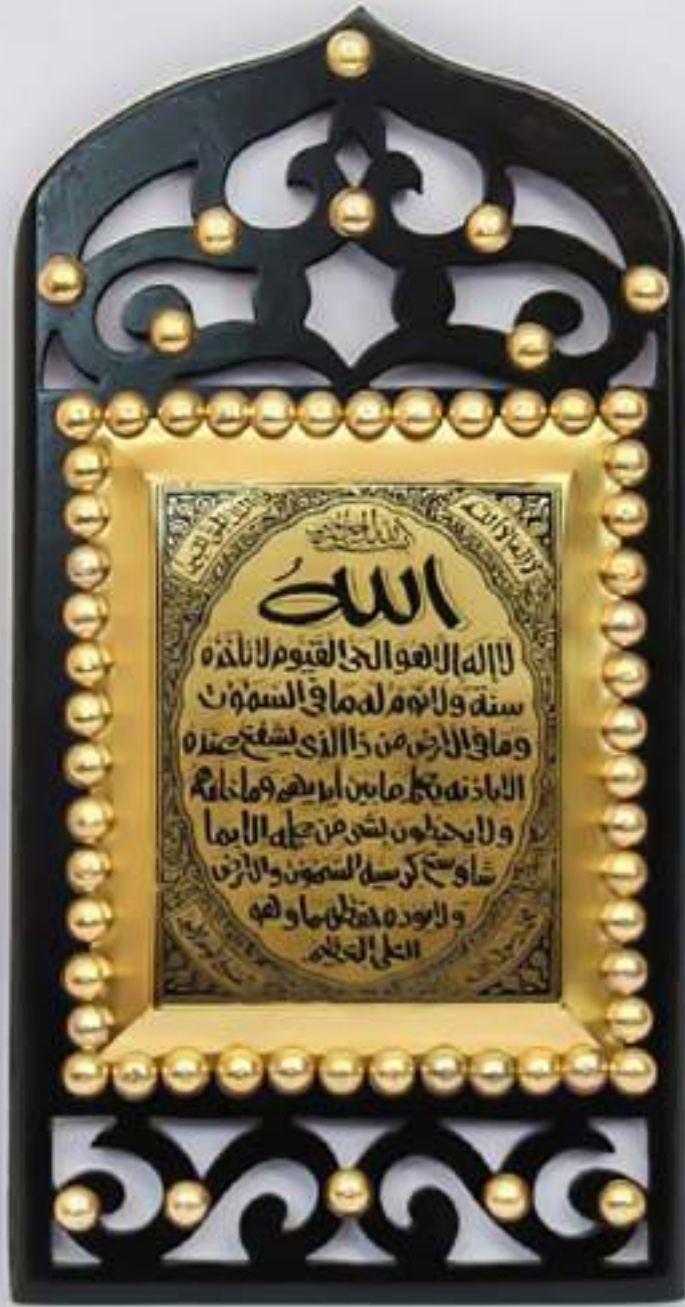 لا إله إلا الله
الله
لا اله الا هو الحي القيوم لا تأخذه
سنة ولا نوم له ما في السموت
وما في الارض من ذا الذي يشفع عنده
الا باذنه يعلم ما بين أيديهم وما خلفهم
ولا يحيطون بشي من علمه الا بما
شاء وسع كرسيه السموت والارض
ولا يوده حفظهما وهو
العلي العظيم